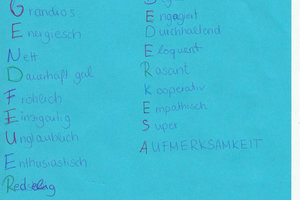 Grandios
Energiesch
Nett
Dauerhaft
Fröhlich
Einzigartig
Unglaublich
Enthusiastisch
Redselig
Engagiert
Durchhaltend
Eloquent
Rasant
Kooperativ
Empathisch
Super
AUFMERKSAMKEIT